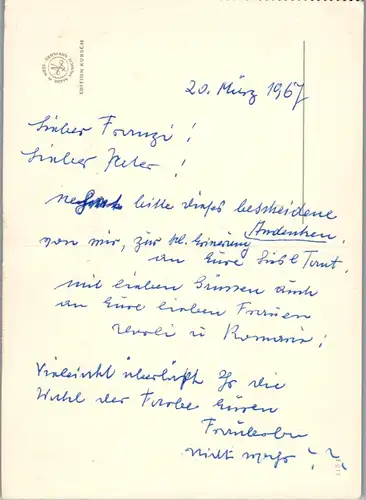 EDITION KURSCH
20. März 1967
Lieber Franzi!
Lieber Peter!
bitte dieses bescheidene
Andenken
von mir, zur kl. Erinnerung
an Eure Lisl Tant,
mit lieben Grüssen auch
an Eure lieben Frauen
u Romana!
Vielleicht überlaßt Ihr die
Wahl der Farbe Euren
nicht wahr??